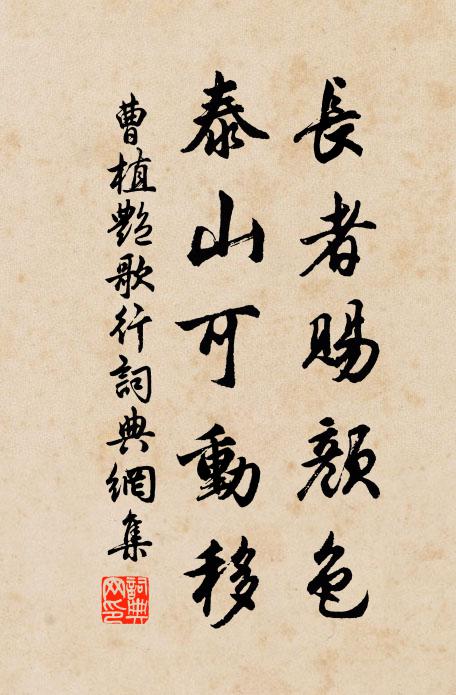 長者賜顏色
泰山可動移
曹植艷歌行詞典網集
詞典
网印